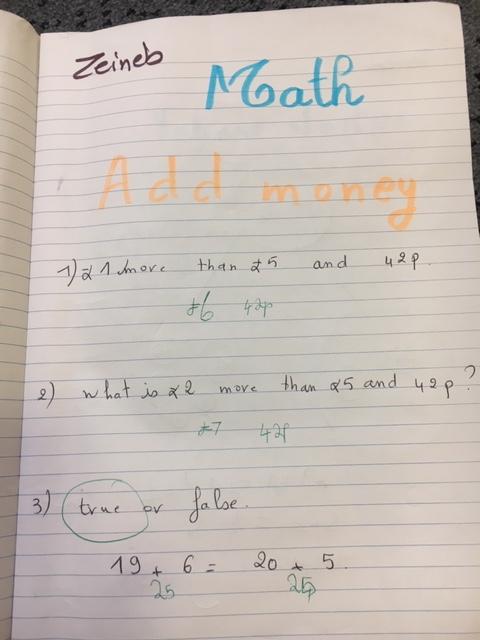 Zeineb
Math
Add money
1) £1 more than £5 and 42p.
£6 42p
2) what is £2 more than £5 and 42p?
£7 42p
3) true or false.
19 + 6 = 20 + 5.
25 25